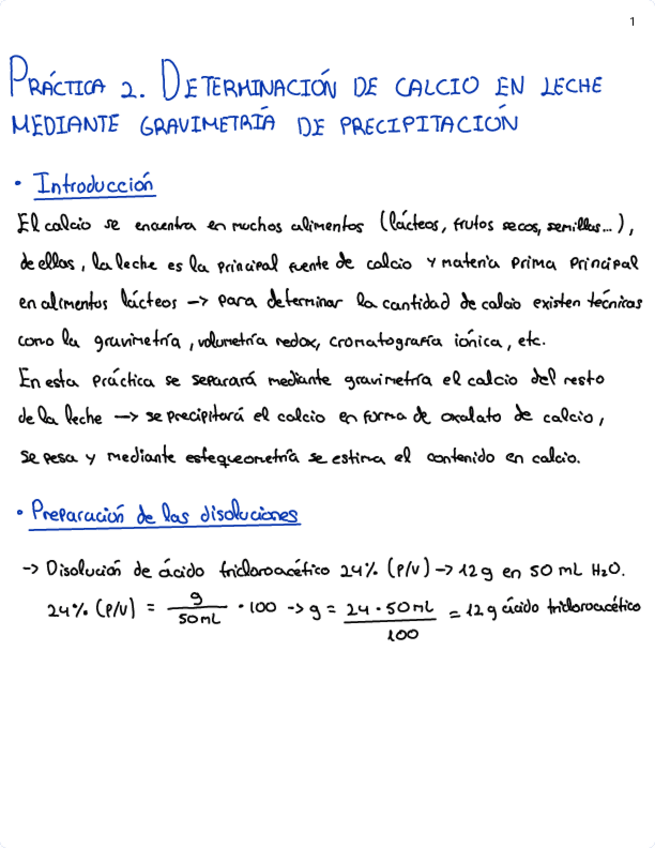 1
PRÁCTICA 2. DETERMINACIÓN DE CALCIO EN LECHE
MEDIANTE GRAVIMETRÍA DE PRECIPITACIÓN
• Introducción
El calcio se encuentra en muchos alimentos (lácteos, frutos secos, semillas...),
de ellos, la leche es la principal fuente de calcio y materia prima principal
en alimentos lácteos -> para determinar la cantidad de calcio existen técnicas
como la gravimetría, volumetría redox, cromatografía iónica, etc.
En esta práctica se separará mediante gravimetría el calcio del resto
de la leche -> se precipitará el calcio en forma de oxalato de calcio,
se pesa y mediante estequeometría se estima el contenido en calcio.
• Preparación de las disoluciones
-> Disolución de ácido tricloroacético 24% (P/V) -> 12g en 50 mL H₂O.
24% (P/V) = g / 50mL · 100 -> g = 24 · 50 mL / 100 = 12 g ácido tricloroacético